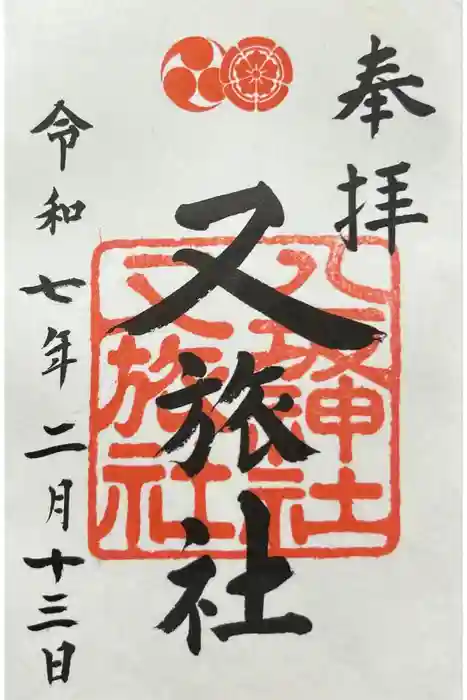 奉拝
八坂神社
又旅社
又旅社
令和七年二月十三日